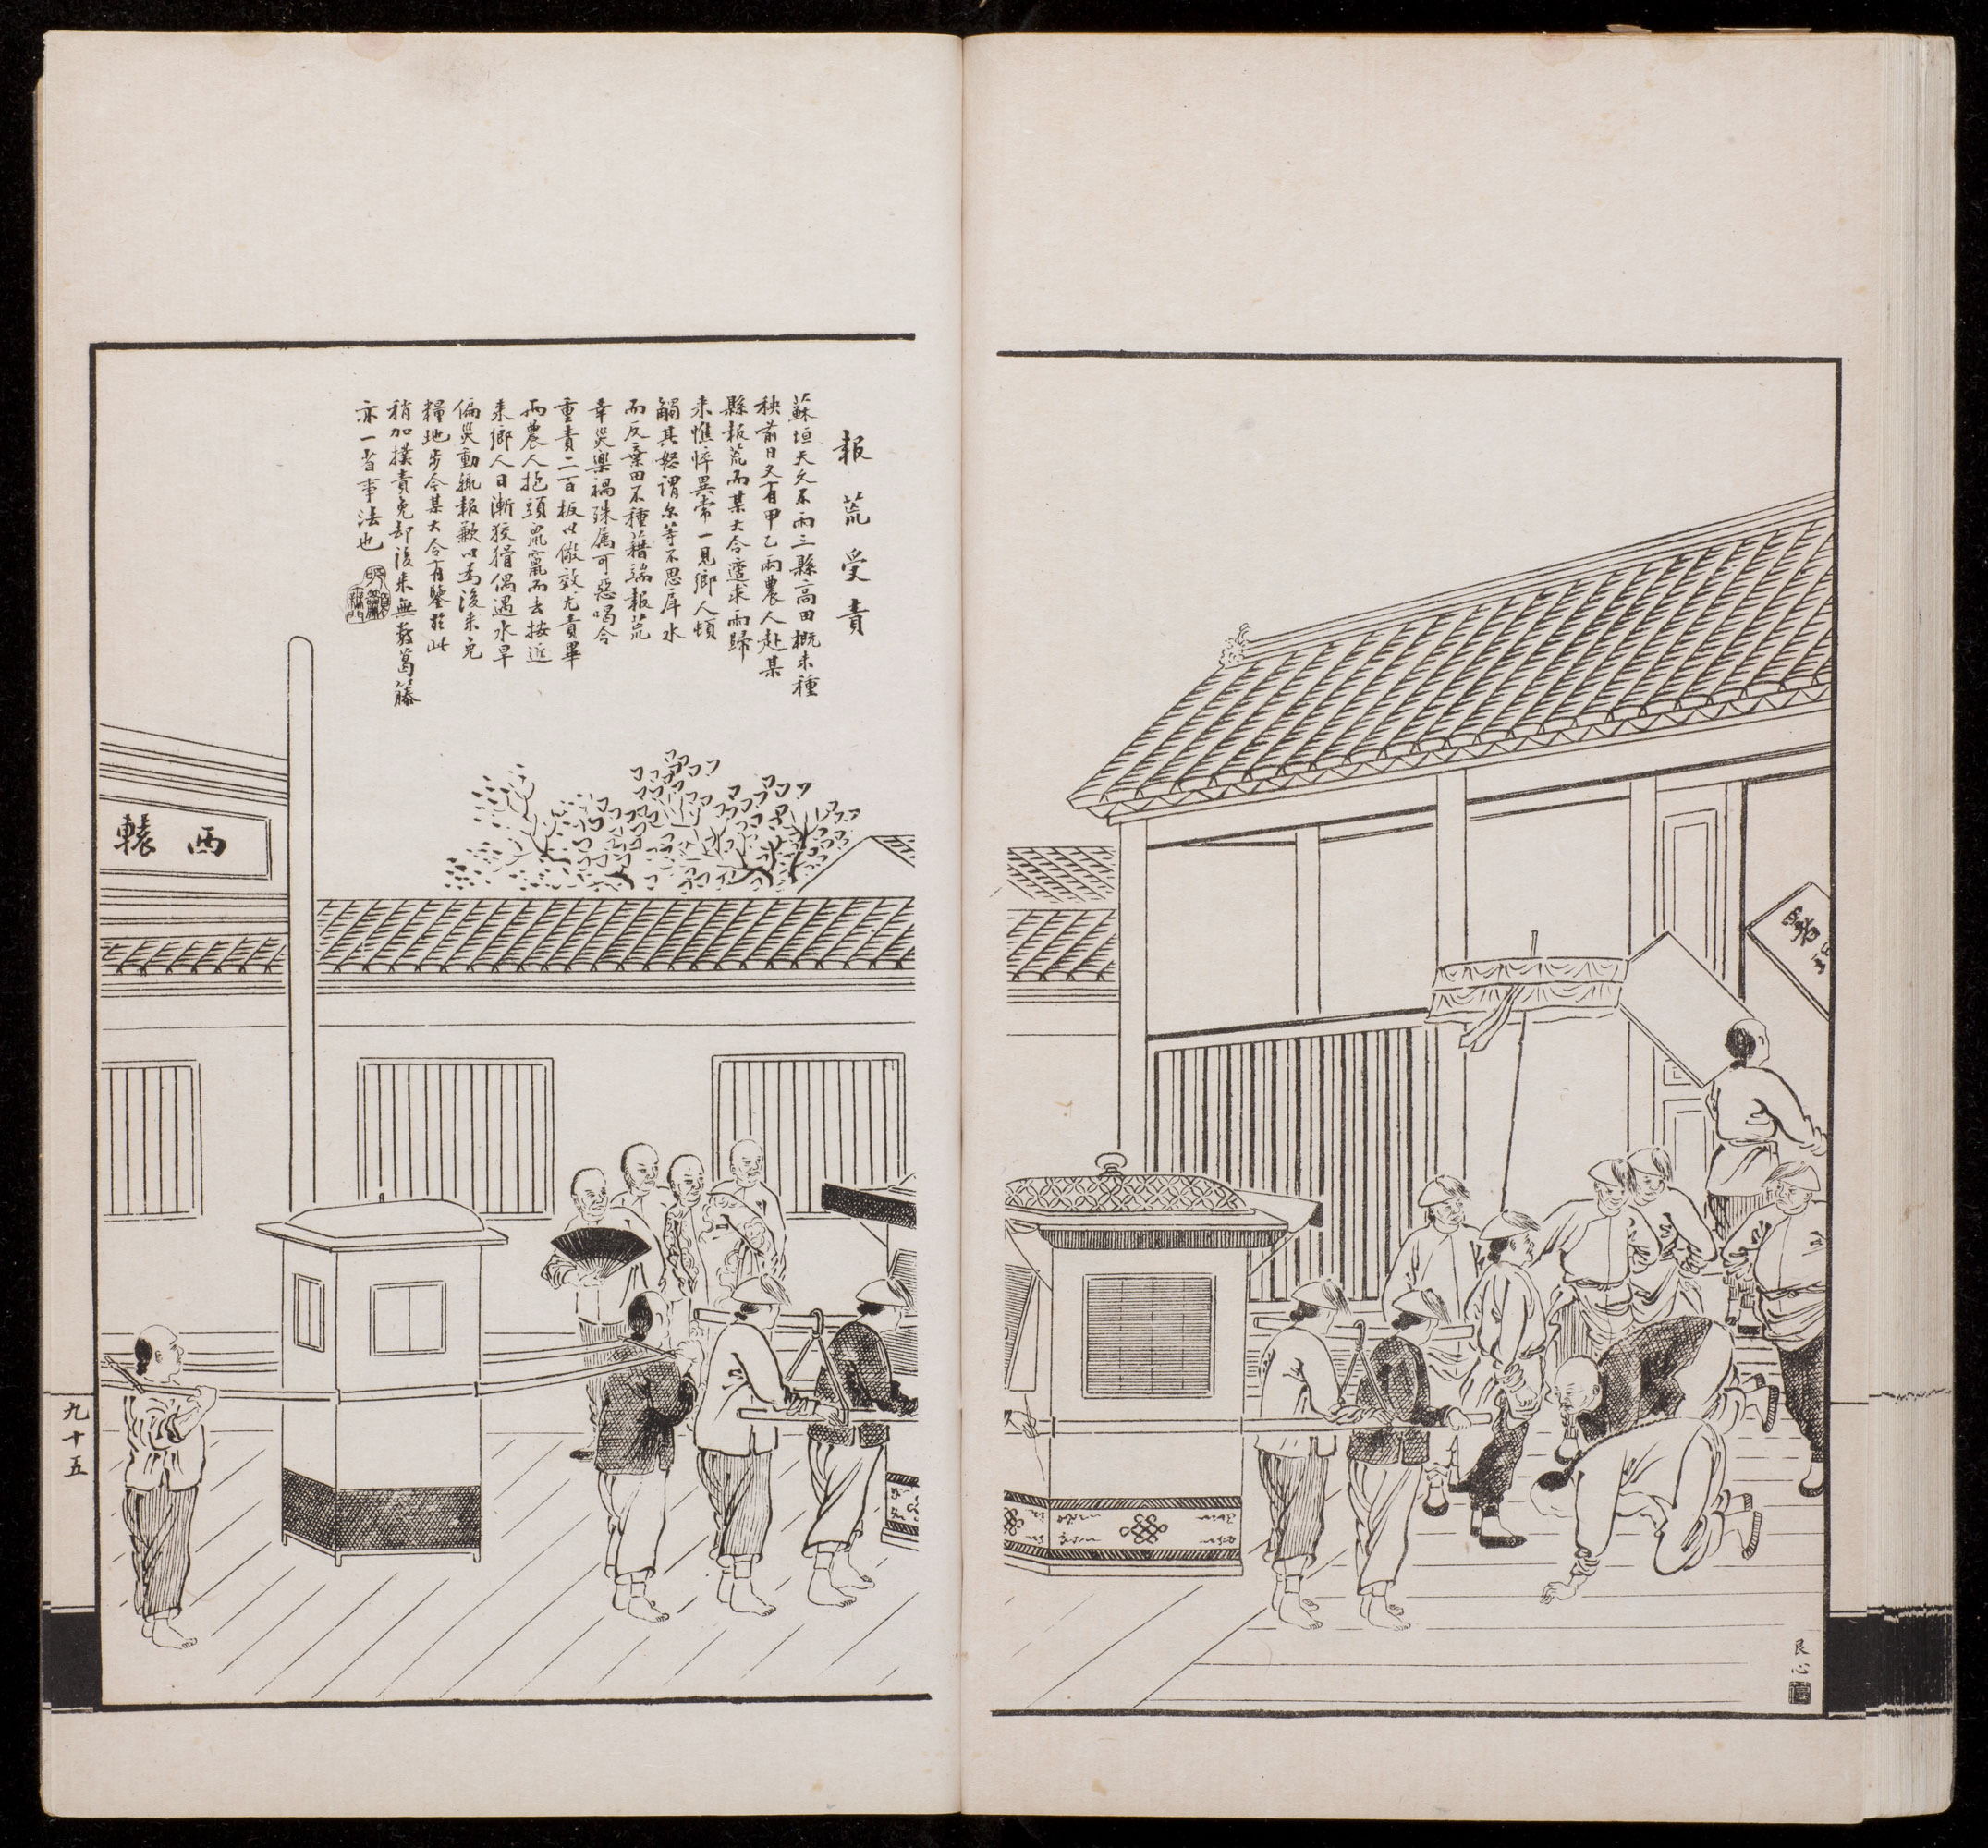 報荒受責
蘇垣天久不雨三縣高田概未種
秧前日又有甲乙兩農人赴某
縣報荒而某大令適求雨歸
來憔悴異常一見鄉人頓
觸其怒謂尔等不思戽水
而反棄田不種藉端報荒
幸災樂禍殊屬可惡喝令
重責二百板以儆效尤責畢
而農人抱頭鼠竄而去按近
來鄉人日漸狡猾偶遇水旱
偏災動輒報歉以為後來免
糧地步今某大令有鑒於此
稍加撲責免却後來無數葛藤
亦一省事法也
西轅
九十五
艮心